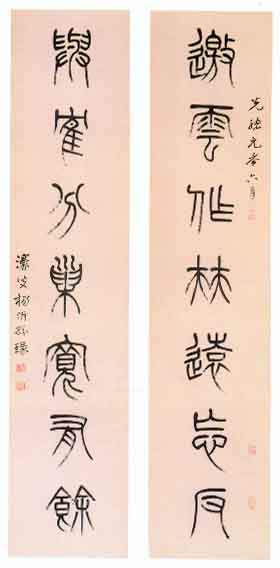 光緒元年六月
邀雲作林遠忘反
與隺分巢寬有餘
濠叟楊沂孫篆